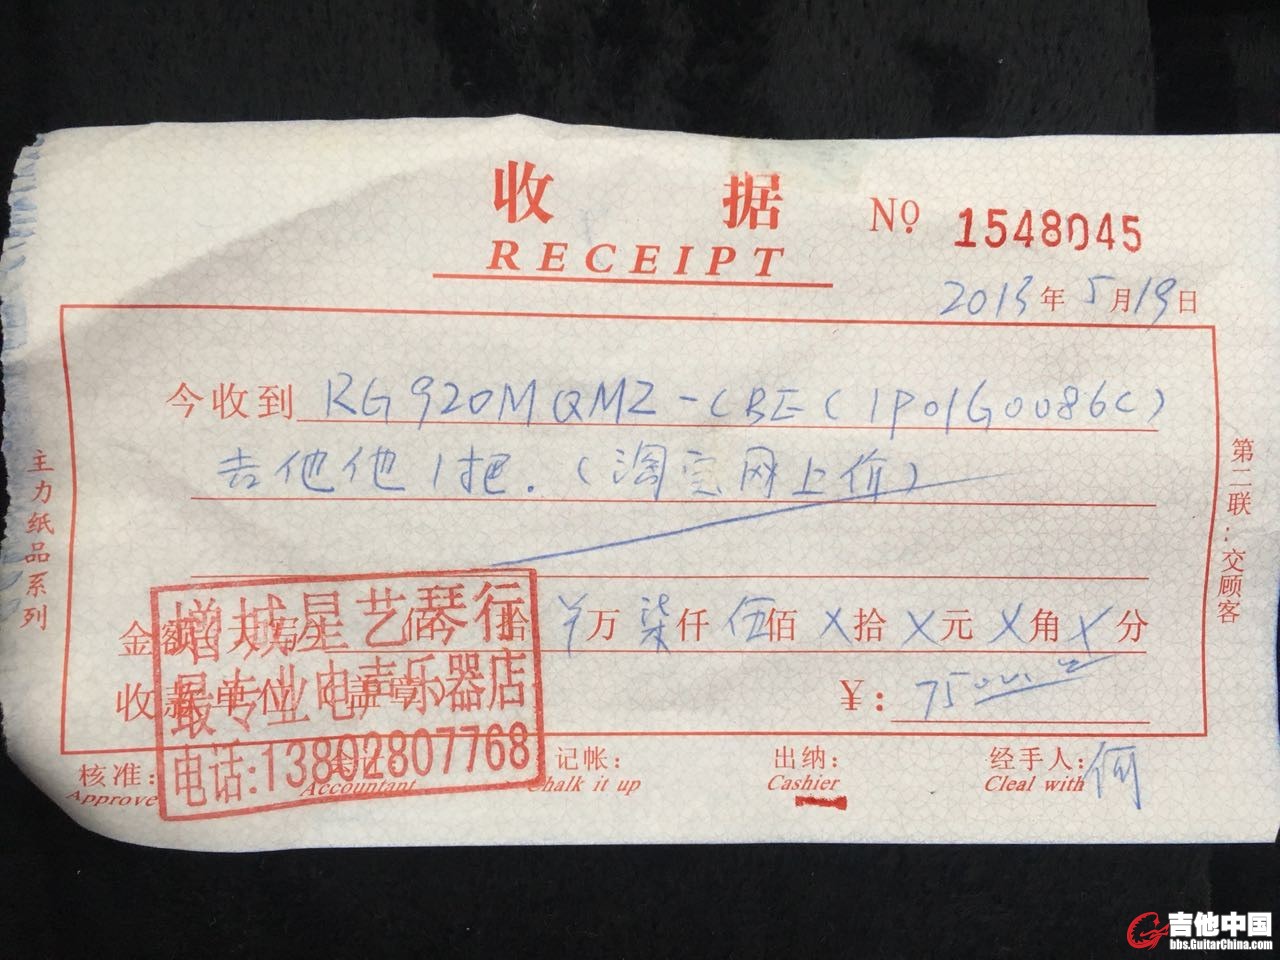 收 据
RECEIPT
No 1548045
2013年5月19日
今收到 RG920MQMZ-CBE(1P01G0086C)
吉他他1把.(淘宝网上价)
主力纸品系列
第二联:交顾客
金额(大写) 佰 拾 万 柒仟 伍佰 X拾 X元 X角 X分
收款单位(盖章) ¥: 7500.00
增城星艺琴行
最专业电声乐器店
电话:13802807768
核准: 会计: 记帐: 出纳: 经手人: 何
Approve Accountant Chalk it up Cashier Cleal with
吉他中国
bbs.GuitarChina.com